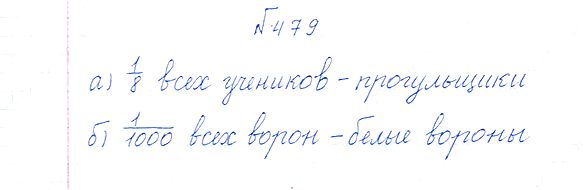 №479
а) 1/8 всех учеников - прогульщики
б) 1/1000 всех ворон - белые вороны